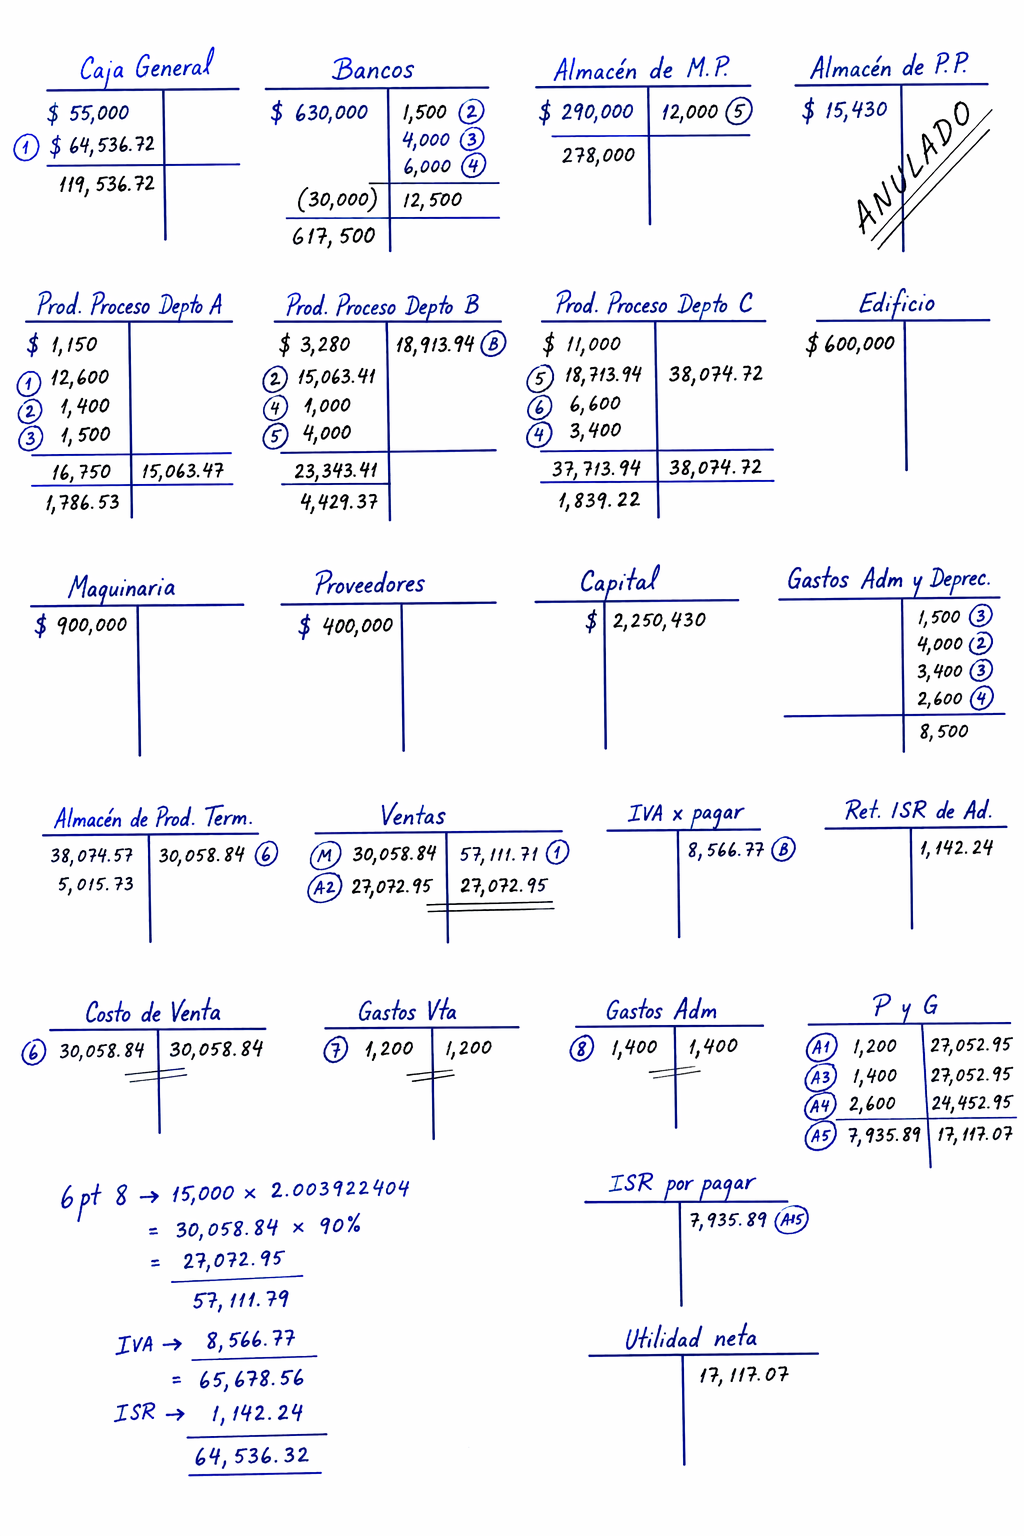 Caja General
$ 55,000
① $ 64,536.72
119,536.72
Bancos
$ 630,000 1,500 ②
4,000 ③
6,000 ④
(30,000) 12,500
617,500
Almacén de M.P.
$ 290,000 12,000 ⑤
278,000
Almacén de P.P.
$ 15,430
ANULADO
Prod. Proceso Depto A
$ 1,150
① 12,600
② 1,400
③ 1,500
16,750 15,063.47
1,786.53
Prod. Proceso Depto B
$ 3,280 18,913.94 Ⓑ
② 15,063.41
④ 1,000
⑤ 4,000
23,343.41
4,429.37
Prod. Proceso Depto C
$ 11,000
⑤ 18,713.94 38,074.72
⑥ 6,600
④ 3,400
37,713.94 38,074.72
1,839.22
Edificio
$ 600,000
Maquinaria
$ 900,000
Proveedores
$ 400,000
Capital
$ 2,250,430
Gastos Adm y Deprec.
1,500 ③
4,000 ②
3,400 ③
2,600 ④
8,500
Almacén de Prod. Term.
38,074.57 30,058.84 ⑥
5,015.73
Ventas
Ⓜ 30,058.84 57,111.71 ①
A2 27,072.95 27,072.95
IVA x pagar
8,566.77 Ⓑ
Ret. ISR de Ad.
1,142.24
Costo de Venta
⑥ 30,058.84 30,058.84
Gastos Vta
⑦ 1,200 1,200
Gastos Adm
⑧ 1,400 1,400
P y G
A1 1,200 27,052.95
A3 1,400 27,052.95
A4 2,600 24,452.95
A5 7,935.89 17,117.07
6 pt 8 → 15,000 x 2.003922404
= 30,058.84 x 90%
= 27,072.95
57,111.79
IVA → 8,566.77
= 65,678.56
ISR → 1,142.24
64,536.32
ISR por pagar
7,935.89
Utilidad neta
17,117.07